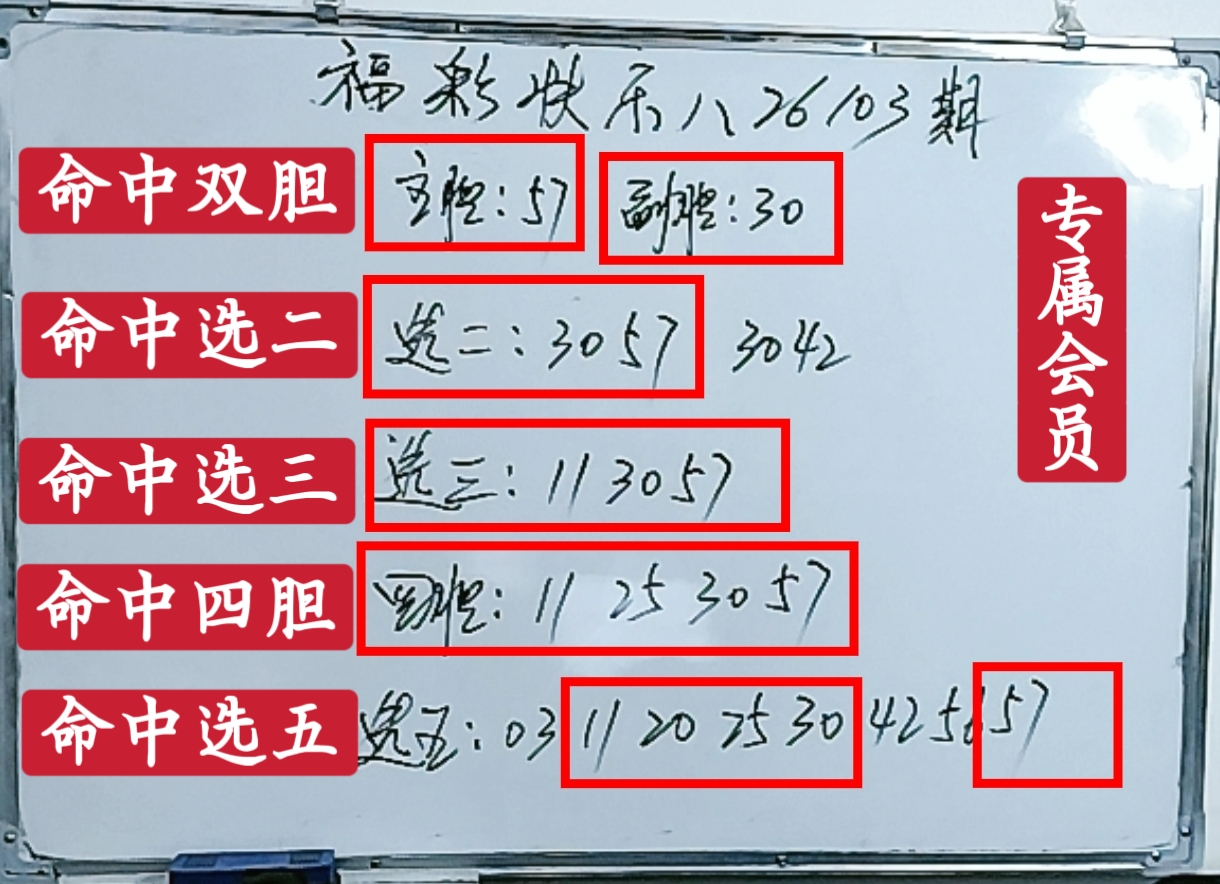 福彩快乐八26103期
命中双胆 主胆：57 副胆：30
命中选二 选二：30 57 30 42
命中选三 选三：11 30 57
命中四胆 四胆：11 25 30 57
命中选五 选五：03 11 20 25 30 42 56 57
专属会员